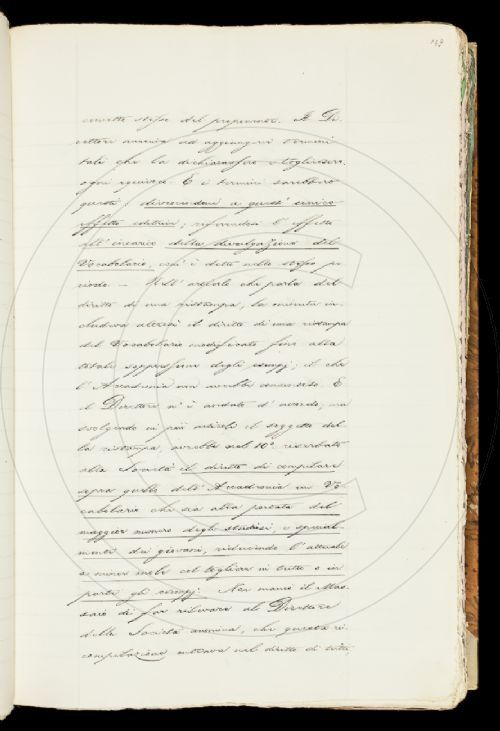 149
cevette stesse del proponente. Il Di-
rettore avea ad aggiungervi termini
tali che la dichiarassero e togliessero
ogni equivoco. E i termini sarebbero
questi: divenendovi a questo unico
effetto editrice; riferendosi l'effetto
all'incarico della divulgazione del
Vocabolario, così è detto nello stesso pe-
riodo. — Nell'articolo che parla del
diritto di una ristampa, la minuta in-
chiudeva altresì il diritto di una ristampa
del Vocabolario modificato fino alla
totale soppressione degli esempj; il che
l'Accademia non avrebbe consentito. E
il Direttore n'è andato d'accordo, ma
svolgendo in più articoli il soggetto del-
la ristampa, avrebbe nel 10.º riserbato
alla Società il diritto di compilare
sopra quello dell'Accademia un Vo-
cabolario che sia alla portata del
maggior numero degli studiosi, e special-
mente dei giovani, riducendo l'attuale
a minor mole col togliere in tutto o in
parte gli esempj. Non mancò il Mas-
saio di far rilevare al Direttore
della Società anonima, che questa ri-
compilazione entrava nel diritto di tutti,